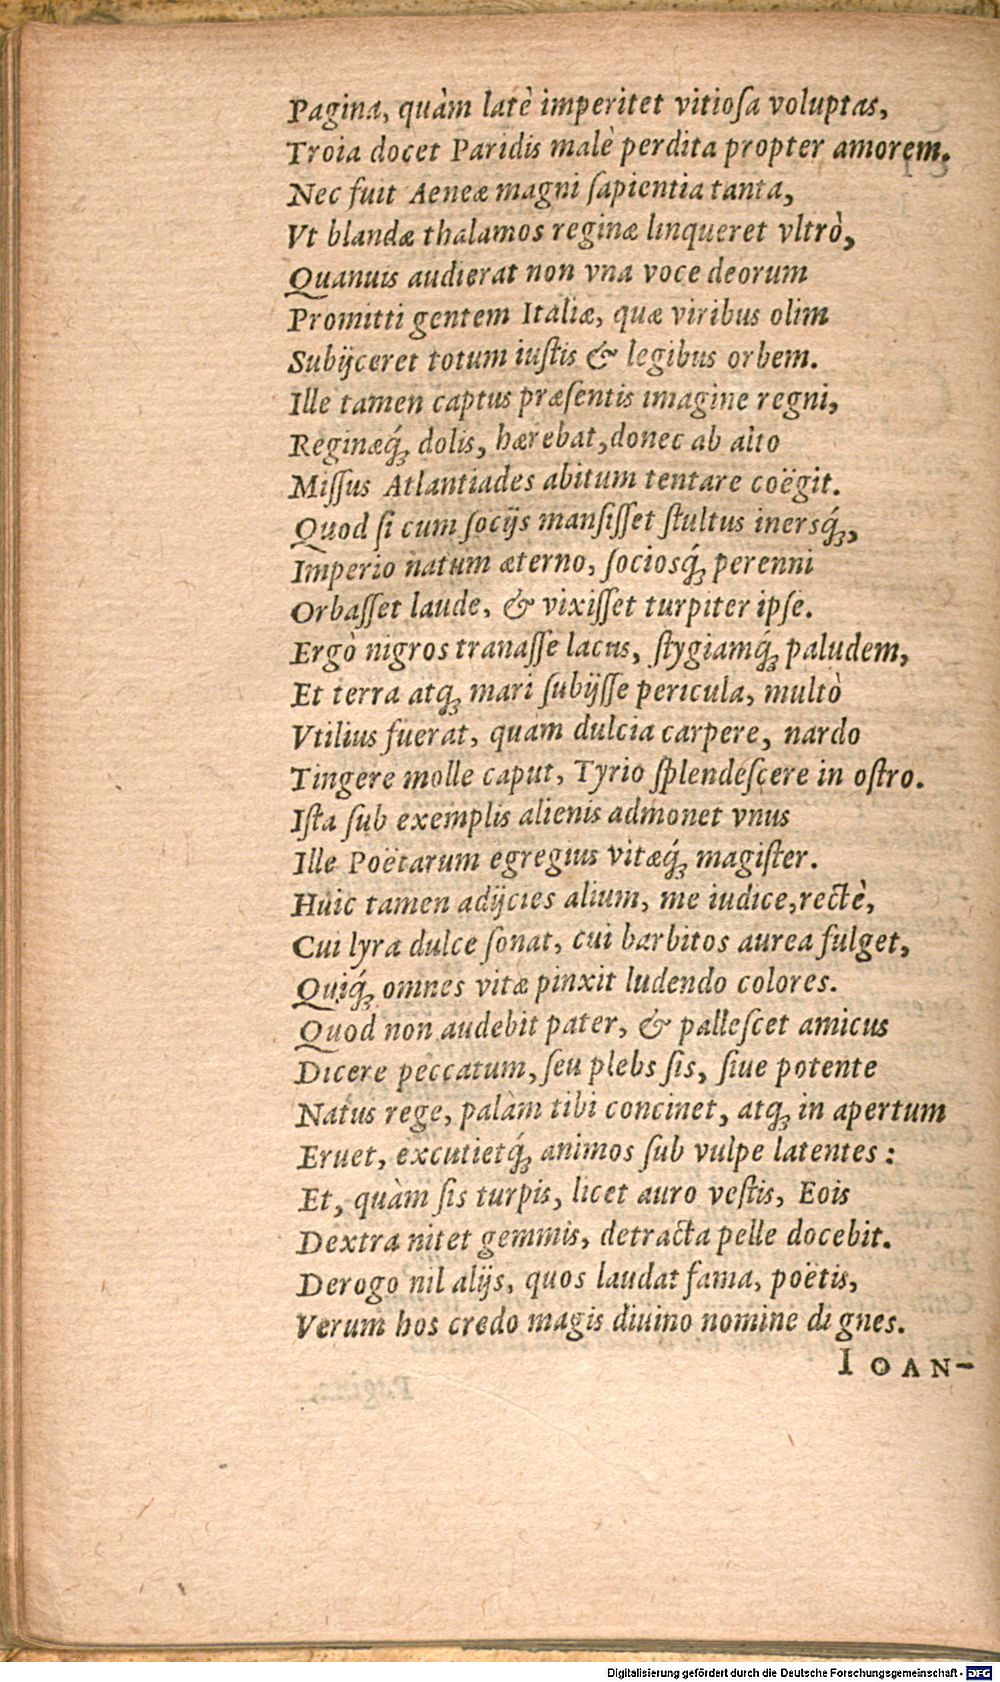 Pagina, quàm latè imperitet vitioſa voluptas,
Troia docet Paridis malè perdita propter amorem.
Nec fuit Aeneæ magni ſapientia tanta,
Vt blandæ thalamos reginæ linqueret vltrò,
Quanuis audierat non vna voce deorum
Promitti gentem Italiæ, quæ viribus olim
Subijceret totum iuſtis & legibus orbem.
Ille tamen captus præſentis imagine regni,
Reginæq́ꝫ dolis, hærebat, donec ab alto
Miſſus Atlantiades abitum tentare coëgit.
Quod ſi cum ſocijs manſiſſet ſtultus inersq́ꝫ,
Imperio natum æterno, ſociosq́ꝫ perenni
Orbaſſet laude, & vixiſſet turpiter ipſe.
Ergò nigros tranaſſe lacus, ſtygiamq́ꝫ paludem,
Et terra atqꝫ mari ſubijſſe pericula, multò
Vtilius fuerat, quàm dulcia carpere, nardo
Tingere molle caput, Tyrio ſplendeſcere in oſtro.
Iſta ſub exemplis alienis admonet vnus
Ille Poëtarum egregius vitæq́ꝫ magiſter.
Huic tamen adijcies alium, me iudice, rectè,
Cui lyra dulce ſonat, cui barbitos aurea fulget,
Quiq́ꝫ omnes vitæ pinxit ludendo colores.
Quod non audebit pater, & palleſcet amicus
Dicere peccatum, ſeu plebs ſis, ſiue potente
Natus rege, palàm tibi concinet, atqꝫ in apertum
Eruet, excutietq́ꝫ animos ſub vulpe latentes:
Et, quàm ſis turpis, licet auro veſtis, Eois
Dextra nitet gemmis, detracta pelle docebit.
Derogo nil alijs, quos laudat fama, poëtis,
Verum hos credo magis diuino nomine dignes.
IOAN-
Digitalisierung gefördert durch die Deutsche Forschungsgemeinschaft - DFG